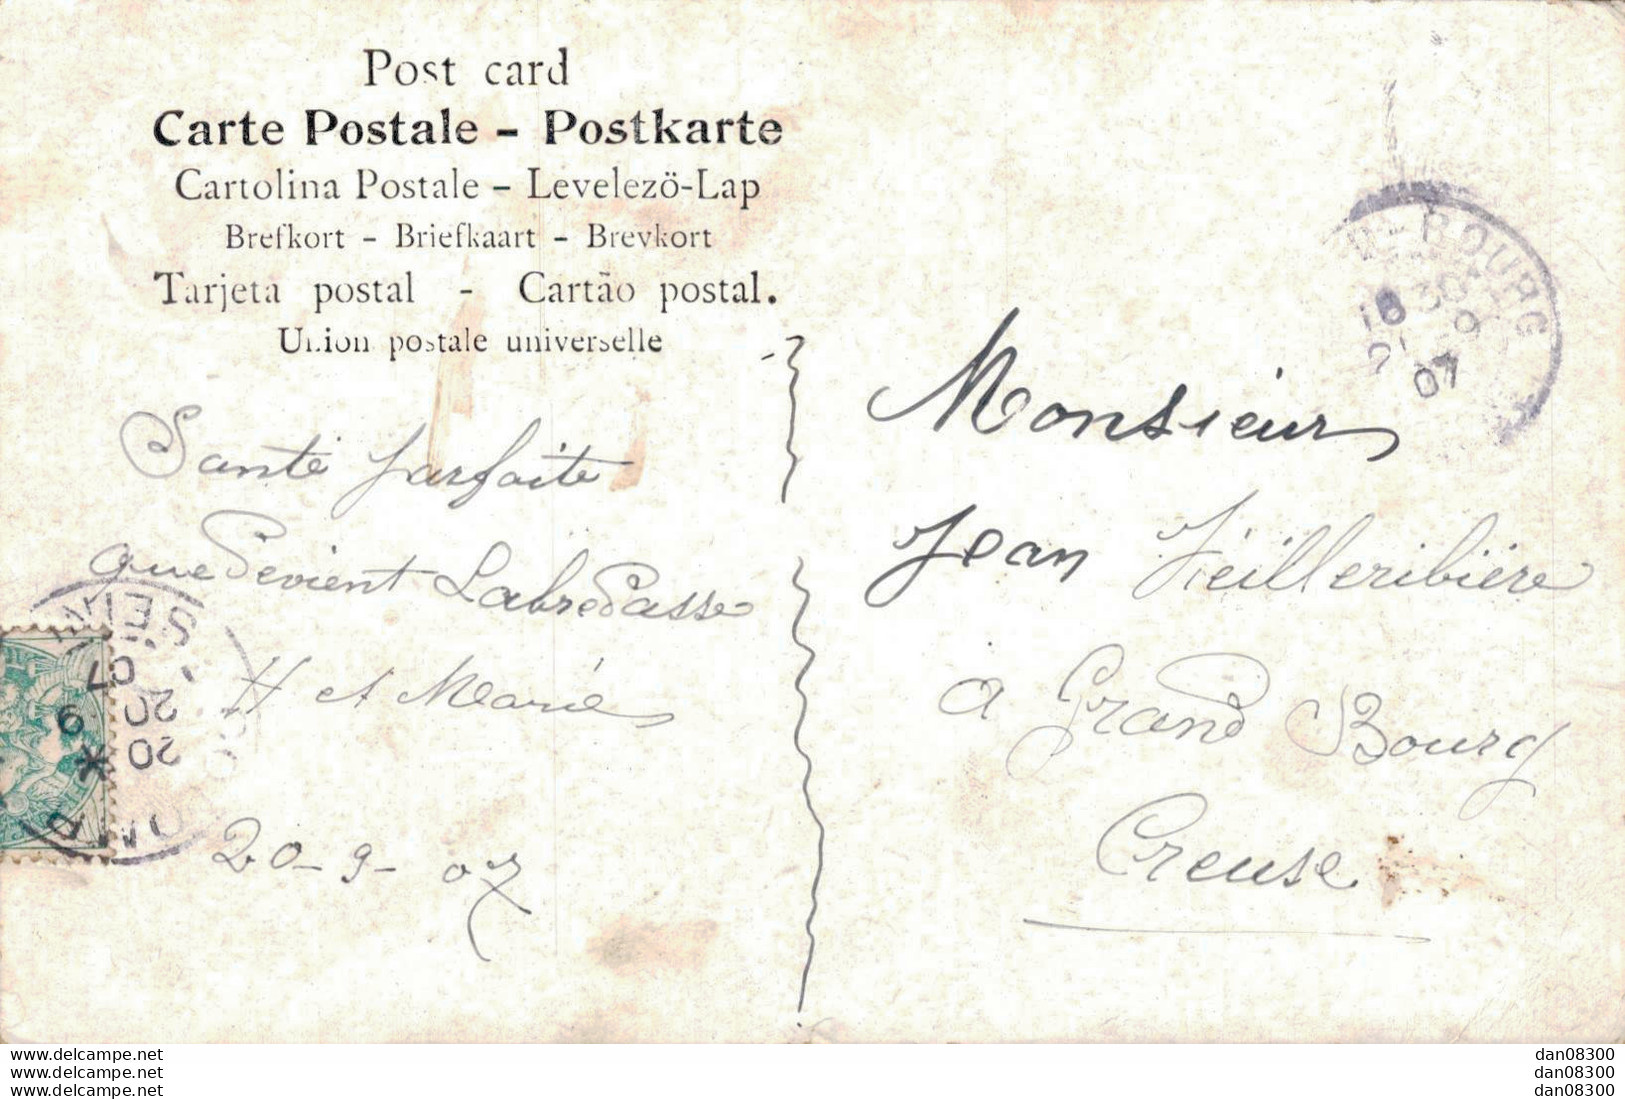 Post card
Carte Postale - Postkarte
Cartolina Postale - Levelezö-Lap
Brefkort - Briefkaart - Brevkort
Tarjeta postal - Cartão postal.
Union postale universelle
Santé parfaite
que devient Labredasse
H et Marie
20-9-07
Monsieur
Jean Vieilleribière
a Grand Bourg
Creuse
BOURG
18 30
21 9
07
SEINE
07
20
20
9
www.delcampe.net
www.delcampe.net
www.delcampe.net
dan08300
dan08300
dan08300